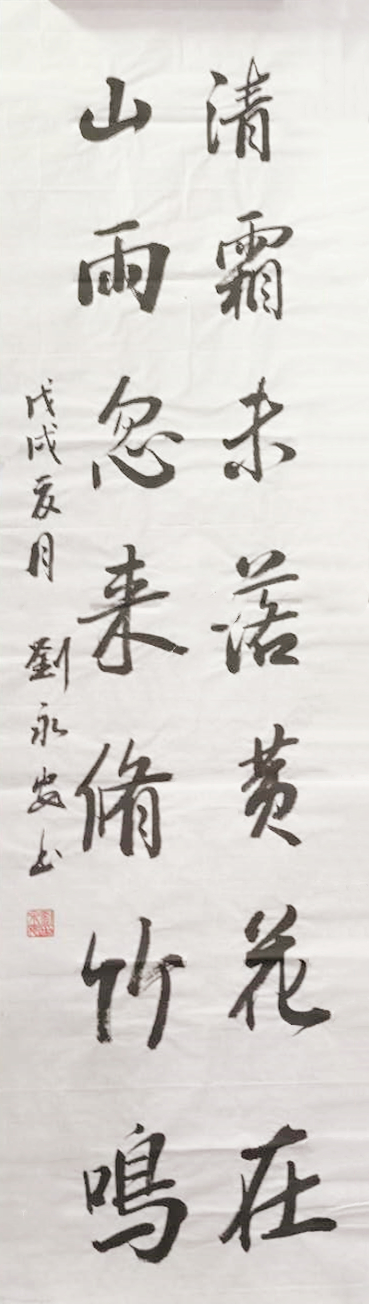 清霜未落黄花在
山雨忽来脩竹鳴
戊戌夏月 劉永安书